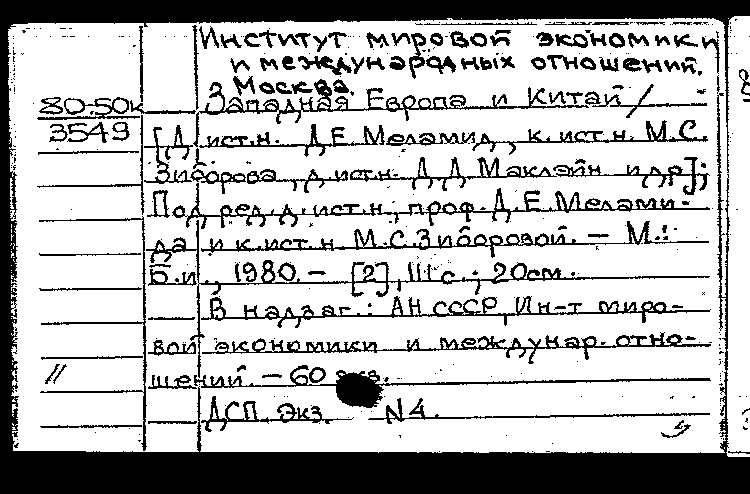 Институт мировой экономики
и международных отношений.
Москва.
80-50к Западная Европа и Китай /
3549 [Д. ист.н. Д.Е. Меламид, к. ист.н. М.С.
Зиборова, д. ист.н. Д.Д. Маклэйн и др];
Под ред. д. ист.н., проф. Д.Е. Мелами-
да и к.ист.н. М.С. Зиборовой. — М.:
Б.и., 1980. — [2], 111 с.; 20см.
В надзаг.: АН СССР, Ин-т миро-
вой экономики и междунар. отно-
// шений. — 60 экз.
ДСП. Экз. N4.